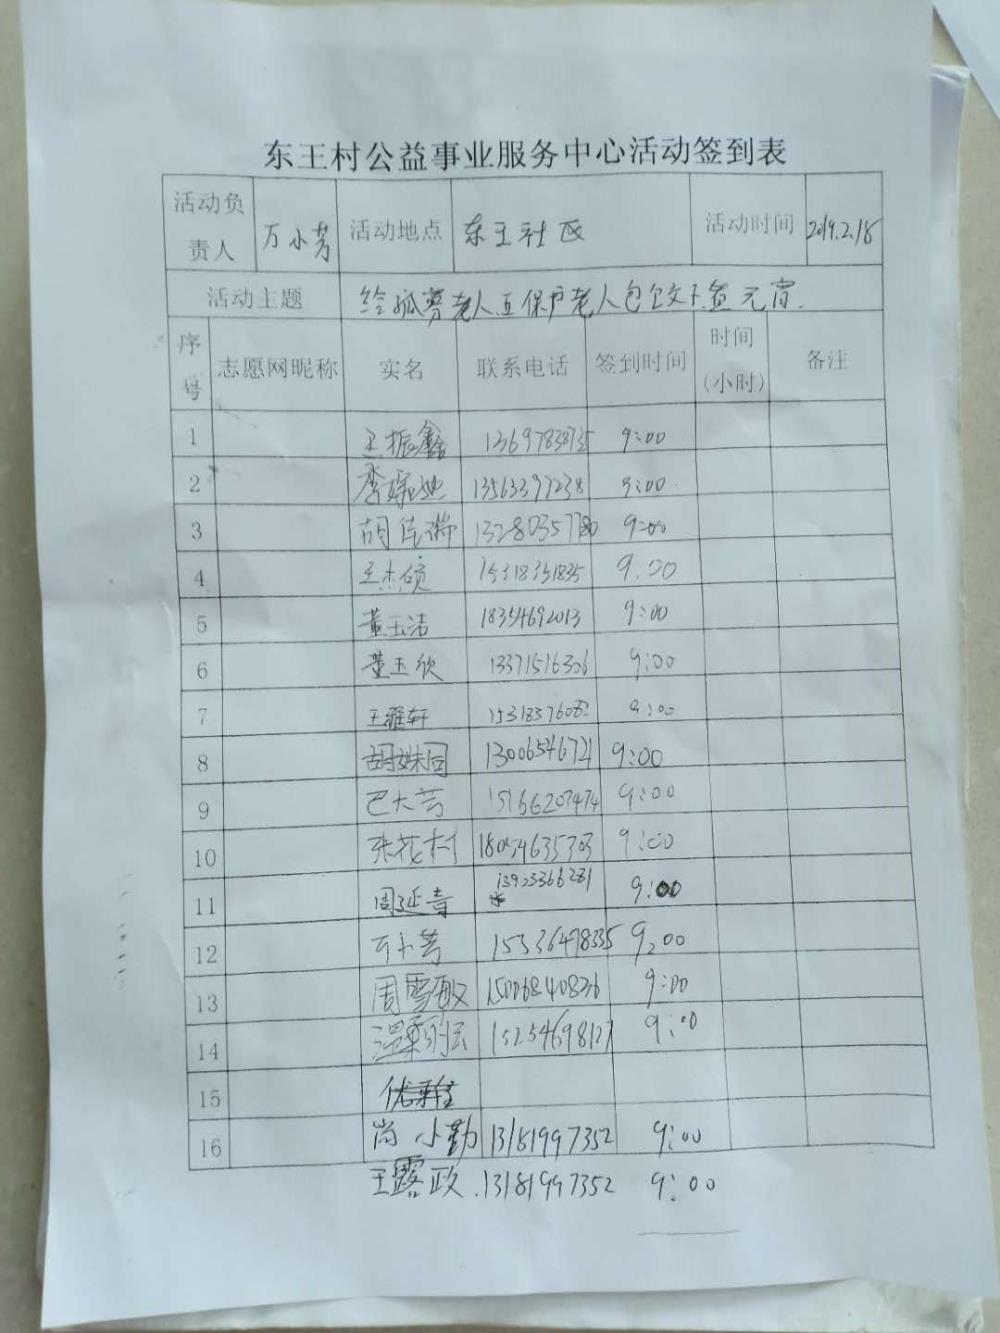 东王村公益事业服务中心活动签到表
活动负责人 万小芳 活动地点 东王社区 活动时间 2019.2.18
活动主题 给孤寡老人五保户老人包饺子煮元宵.
序号 志愿网昵称 实名 联系电话 签到时间 时间(小时) 备注
1 王振鑫 9:00
2 李 13563397238 9:00
3 胡佳 13280357780 9:00
4 王杰硕 15318351835 9:00
5 董玉洁 18354692013 9:00
6 董玉欣 13371516306 9:00
7 王雅轩 15318376082 9:00
8 胡姝同 13006546721 9:00
9 巴大芳 15166207474 9:00
10 朱花村 18054635703 9:00
11 周延青 9:00
12 万小芳 15336478335 9:00
13 周雪敏 15006840836 9:00
14 温 15254698127 9:00
15
16 尚小勤 13181997352 9:00
王露政 13181997352 9:00